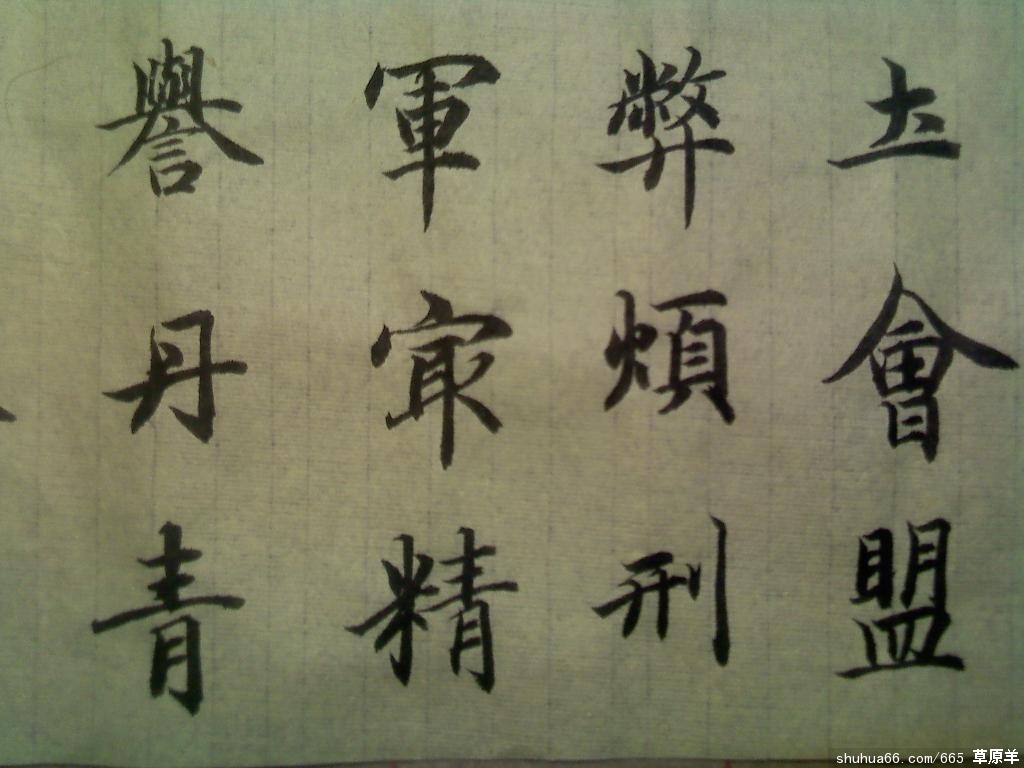 土會盟
弊煩刑
軍寂精
譽丹青
shuhua66.com/665 草原羊